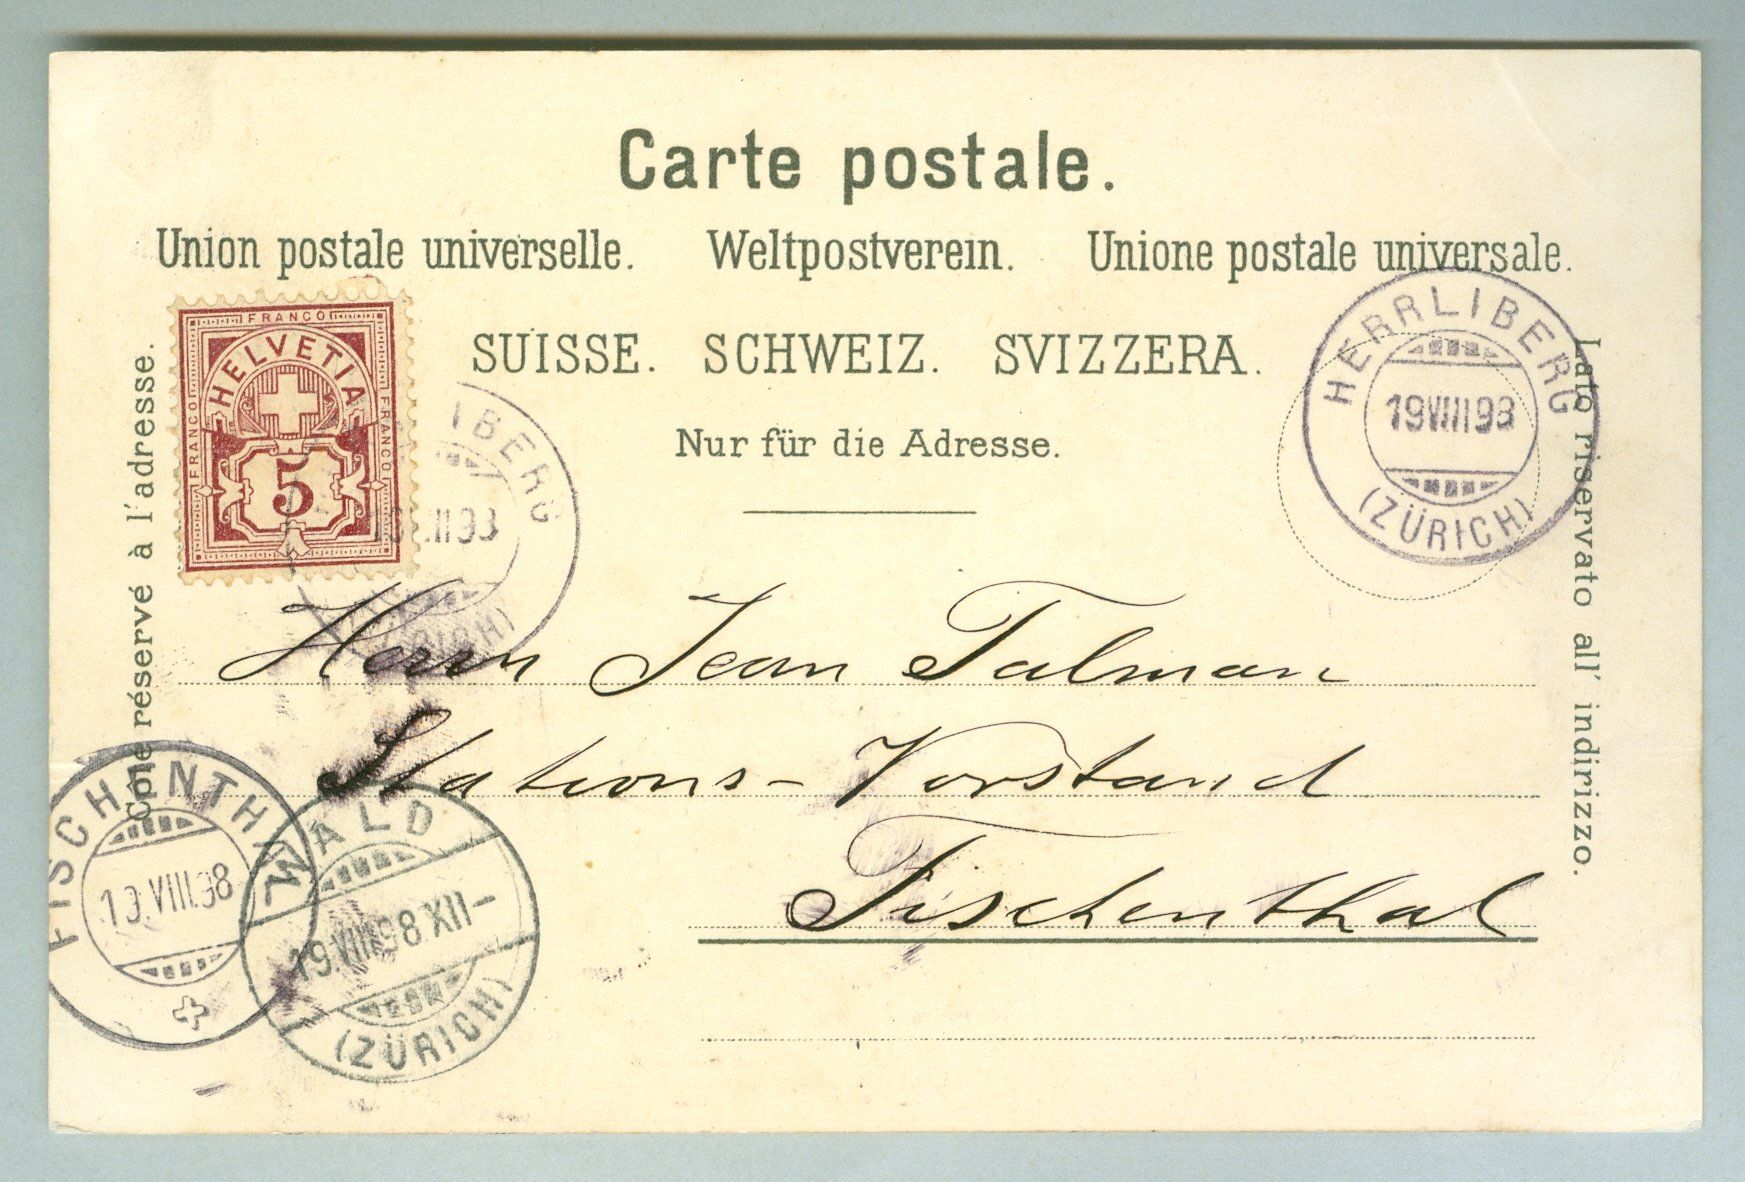 Carte postale.
Union postale universelle. Weltpostverein. Unione postale universale.
SUISSE. SCHWEIZ. SVIZZERA.
Nur für die Adresse.
Côté réservé à l'adresse.
Lato riservato all' indirizzo.
FRANCO
FRANCO
FRANCO
HELVETIA
5
LIBERG
HERRLIBERG
19 VIII 98
(ZÜRICH)
Herrn Jean Talman
Stations-Vorstand
Fischenthal
FISCHENTHAL
19.VIII.98
WALD
19.VIII.98 XII-
(ZÜRICH)